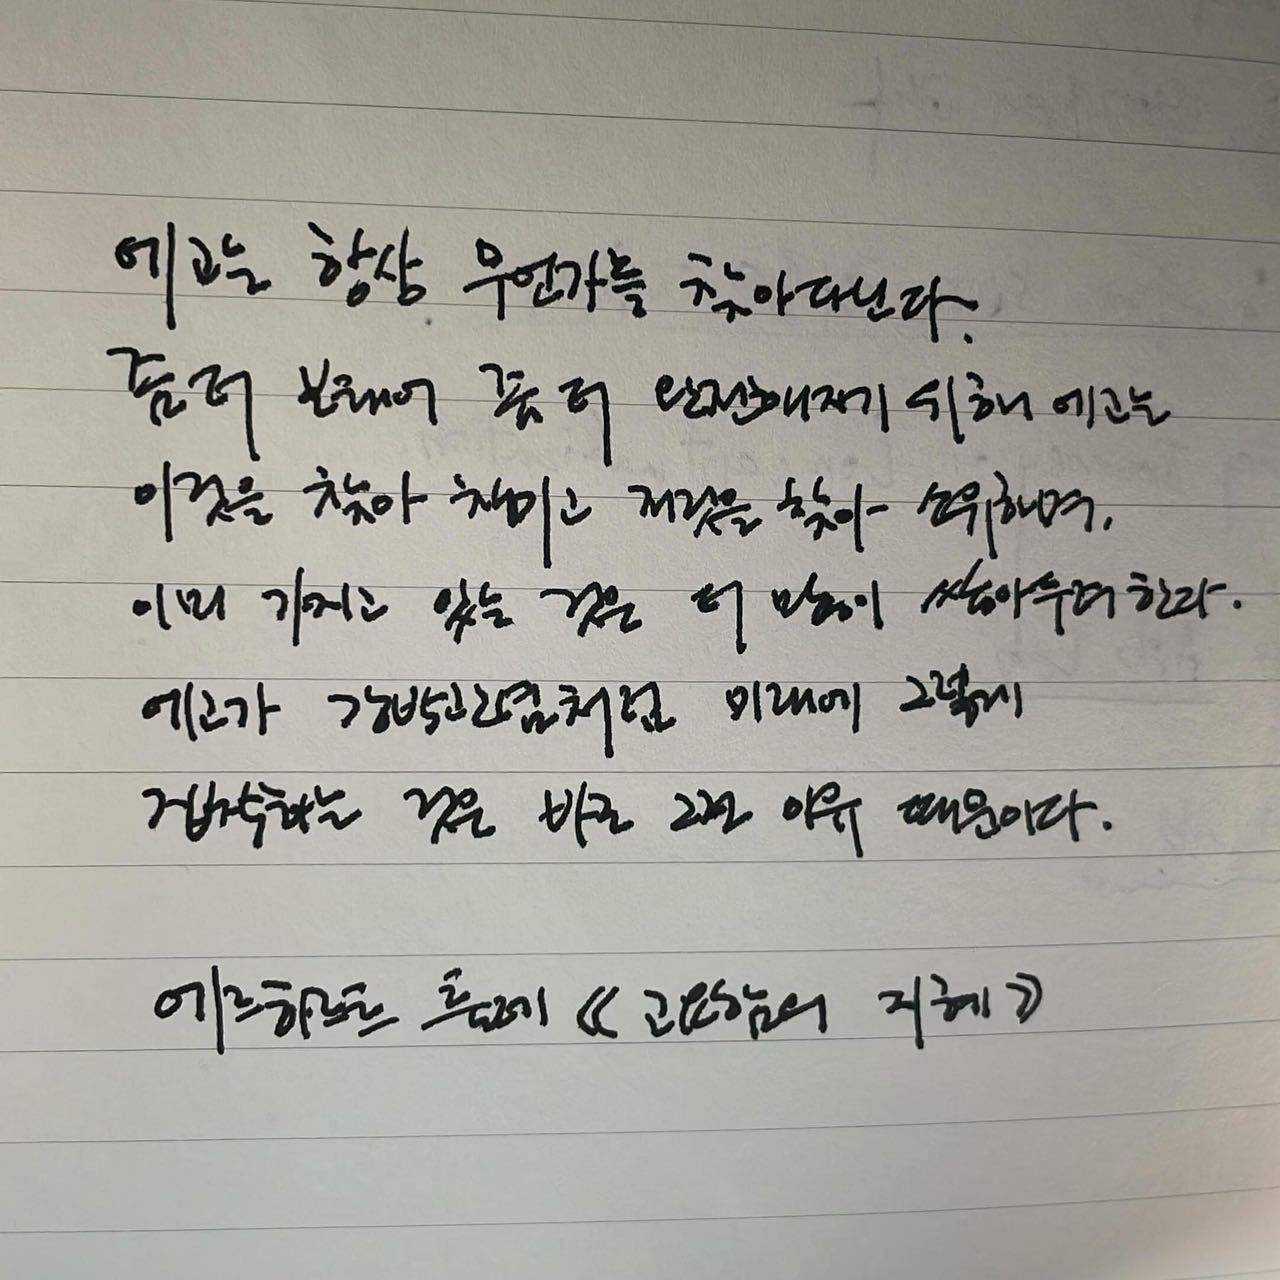 에고는 항상 무언가를 찾아다닌다.
좀 더 보태어 좀 더 완전해지기 위해 에고는
이것을 찾아 헤매고 저것을 찾아 소유하며,
이미 가지고 있는 것은 더 많이 쌓아두려 한다.
에고가 강박관념처럼 미래에 그렇게
집착하는 것은 바로 그런 이유 때문이다.
에크하르트 톨레 《고요함의 지혜》